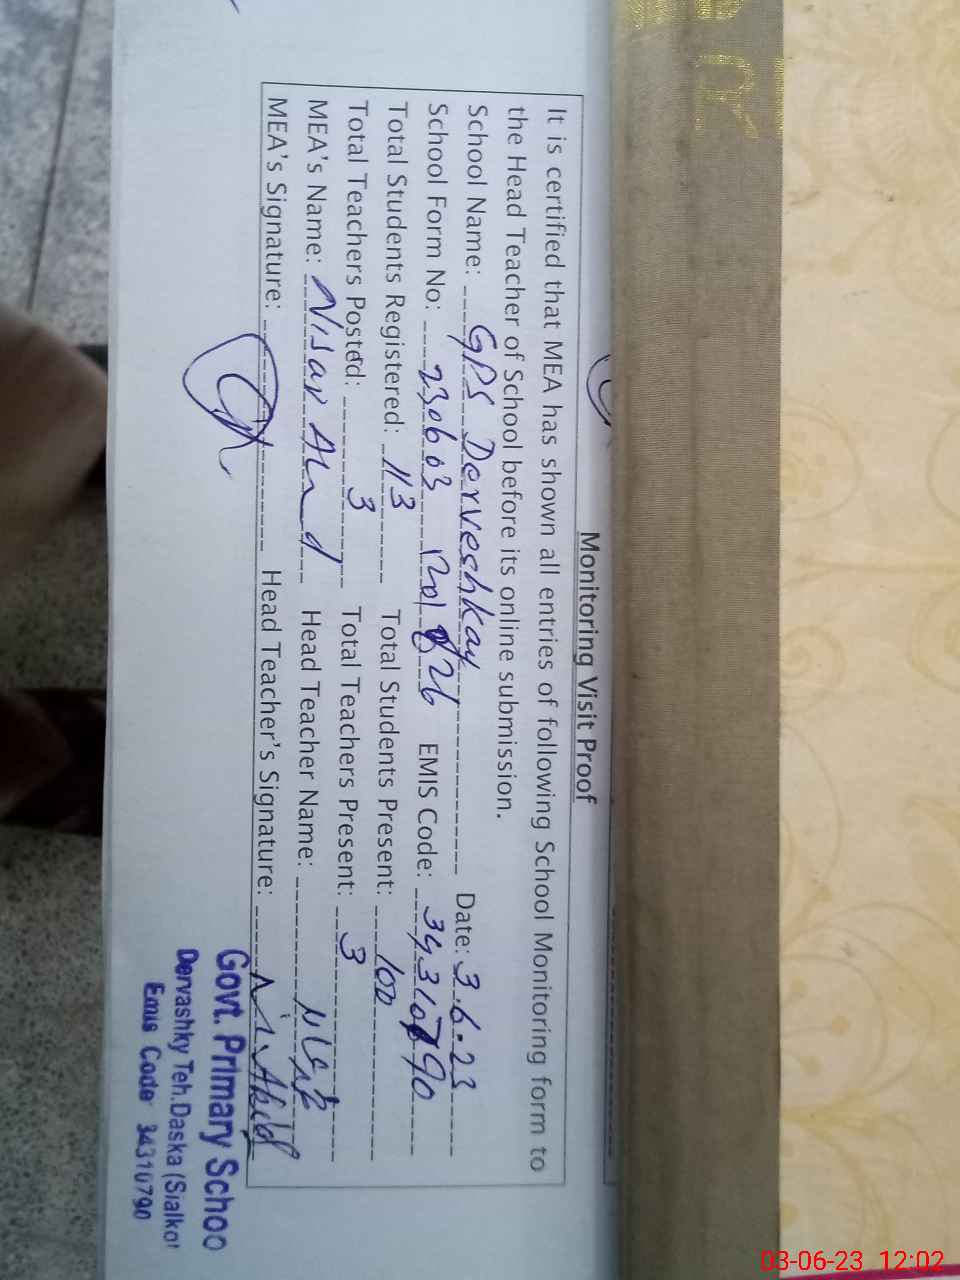 Monitoring Visit Proof
It is certified that MEA has shown all entries of following School Monitoring form to
the Head Teacher of School before its online submission.
School Name: GPS Derveshkay Date: 3.6.23
School Form No: 230603 1201 26 EMIS Code: 34310790
Total Students Registered: 113 Total Students Present: 100
Total Teachers Posted: 3 Total Teachers Present: 3
MEA's Name: Nisar Ahmd Head Teacher Name:
MEA's Signature: Head Teacher's Signature:
Govt. Primary Schoo
Dervashky Teh.Daska (Sialkot
Emis Code 34310790
03-06-23 12:02